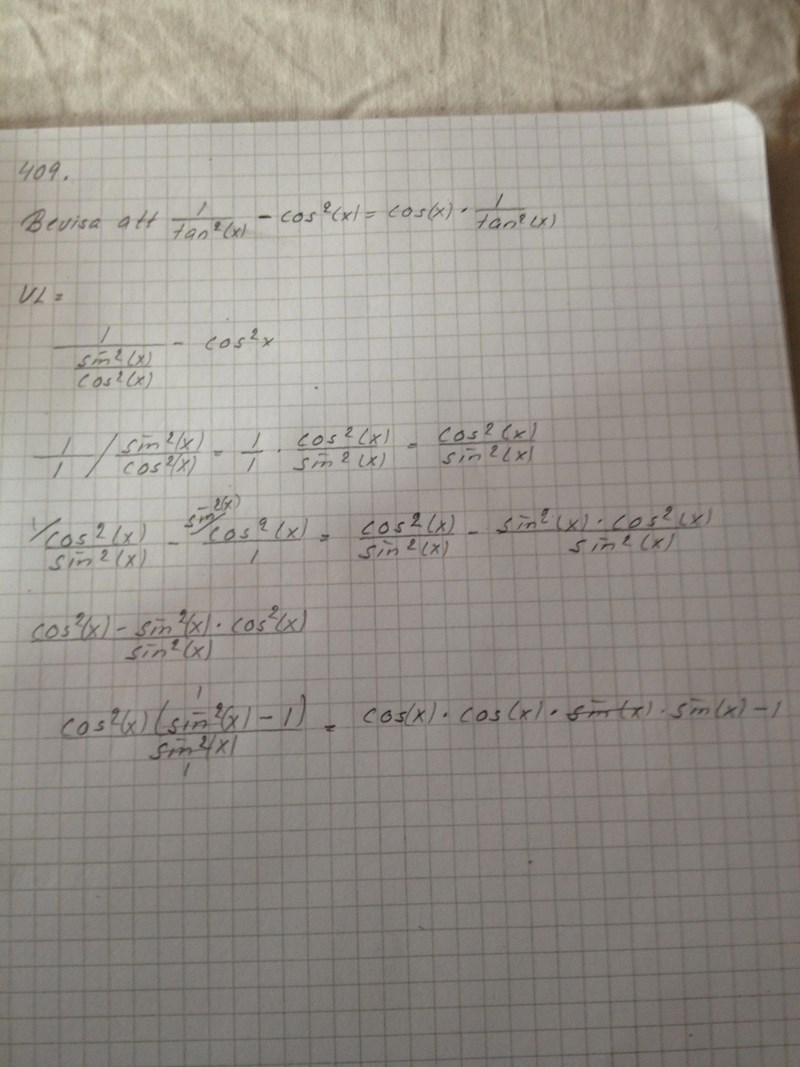 409.
Bevisa att 1/tan²(x) - cos²(x) = cos(x) · 1/tan²(x)
VL =
1/(sin²(x)/cos²(x)) - cos²x
1/1 / sin²(x)/cos²(x) = 1/1 · cos²(x)/sin²(x) = cos²(x)/sin²(x)
1/ cos²(x)/sin²(x) - sin²(x)/ cos²(x)/1 = cos²(x)/sin²(x) - sin²(x) · cos²(x)/sin²(x)
cos²(x) - sin²(x) · cos²(x)/sin²(x)
cos²(x) (sin²(x) - 1)/sin²(x) = cos(x) · cos(x) · sin(x) · sin(x) - 1